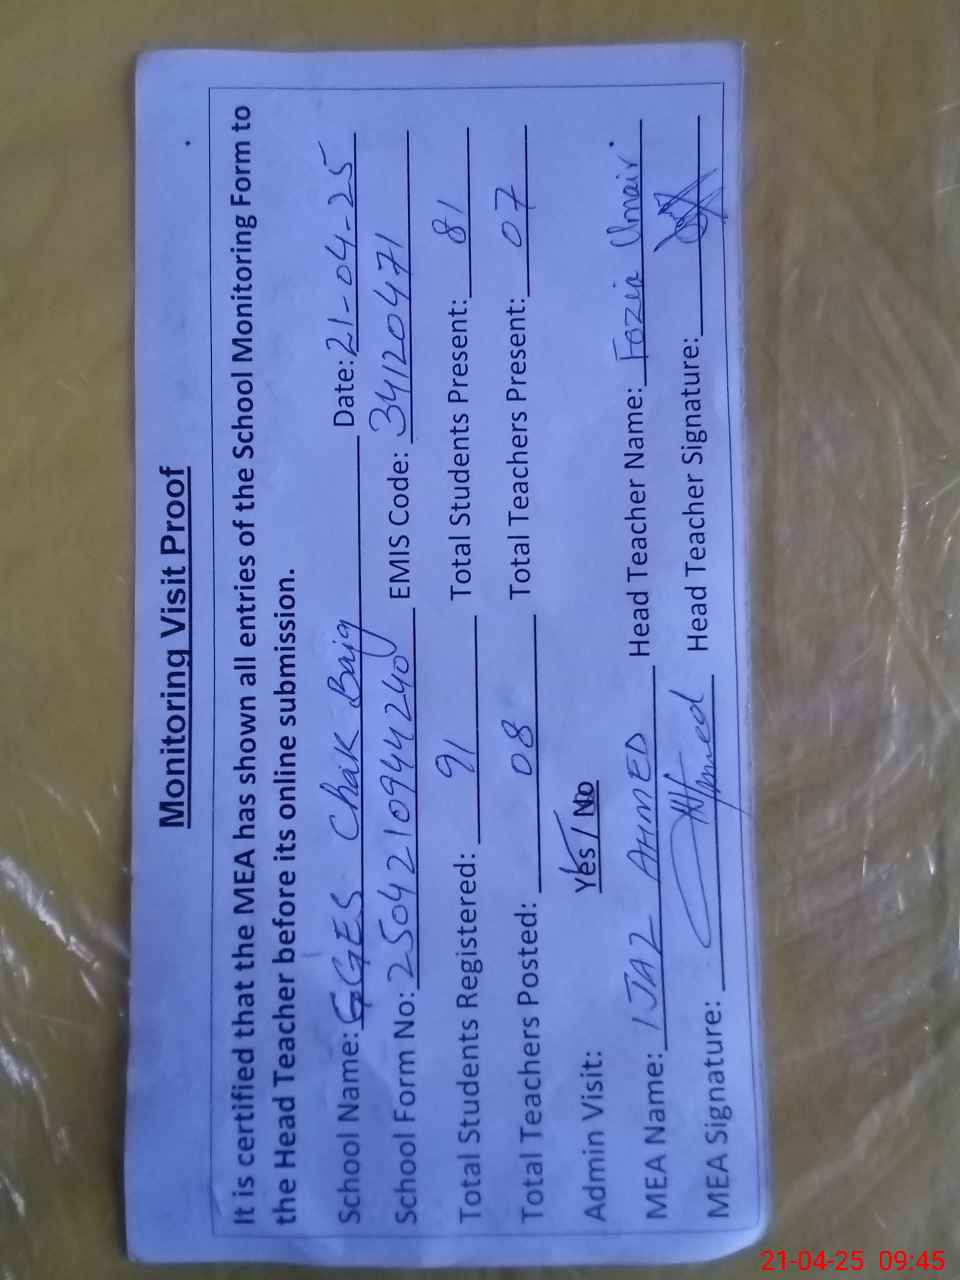 Monitoring Visit Proof
It is certified that the MEA has shown all entries of the School Monitoring Form to
the Head Teacher before its online submission.
School Name: GGES Chak Baig Date: 21-04-25
School Form No: 2504210944240 EMIS Code: 34120471
Total Students Registered: 91 Total Students Present: 81
Total Teachers Posted: 08 Total Teachers Present: 07
Admin Visit: Yes / No
MEA Name: IJAZ AHMED Head Teacher Name: Fozia Umair
MEA Signature: Ahmed Head Teacher Signature:
21-04-25 09:45